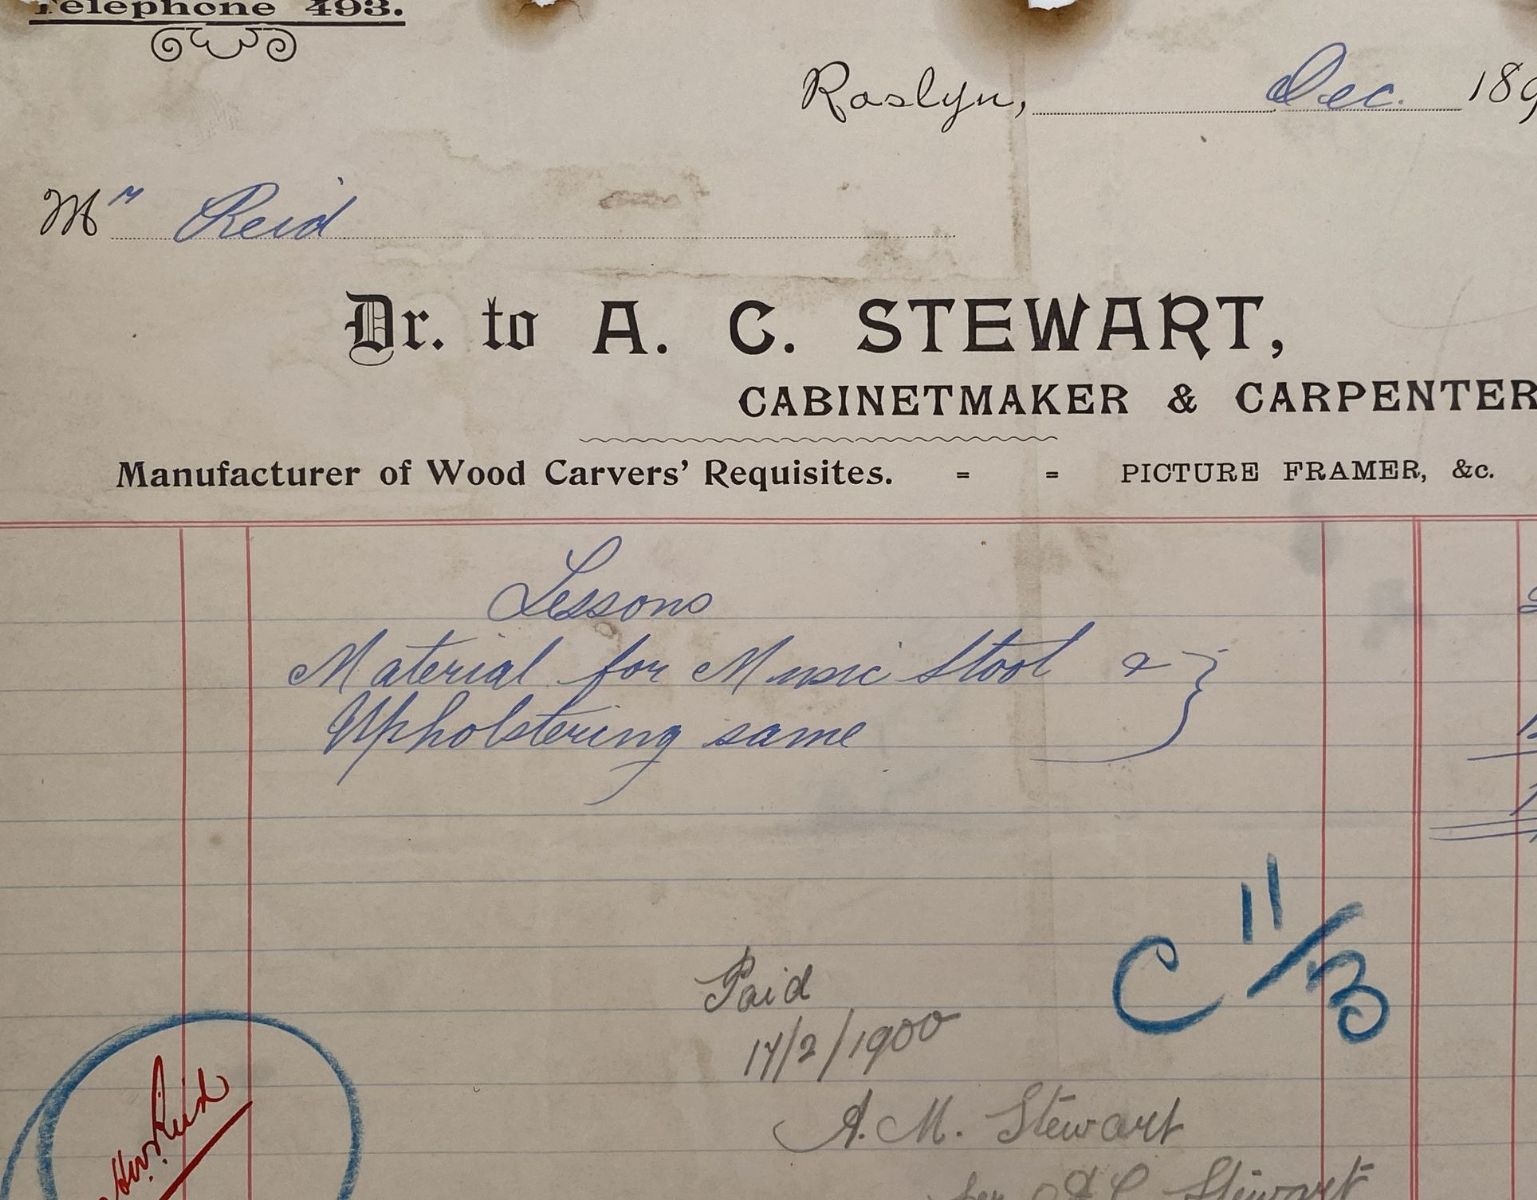 Telephone 493.
Roslyn, Dec. 189
Mr Reid
Dr. to A. C. STEWART,
CABINETMAKER & CARPENTER
Manufacturer of Wood Carvers' Requisites. = = PICTURE FRAMER, &c.
Lessons
Material for Music Stool & }
Upholstering same
C 11/3
Paid
17/2/1900
A. M. Stewart
per A C Stewart
Reid